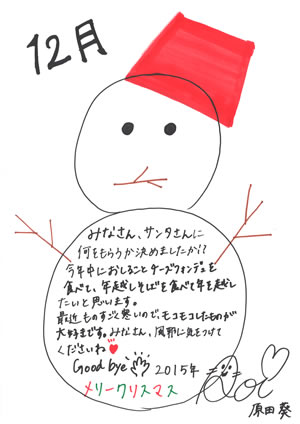 12月
みなさん、サンタさんに
何をもらうか決めましたか!?
今年中におしることチーズフォンデュを
食べて、年越しそばを食べて年を越し
たいと思います。
最近ものすごく寒いので、モコモコしたものが
大好きです。みなさん、風邪に気をつけて
くださいね♥
Good bye 2015年
メリークリスマス
原田 葵